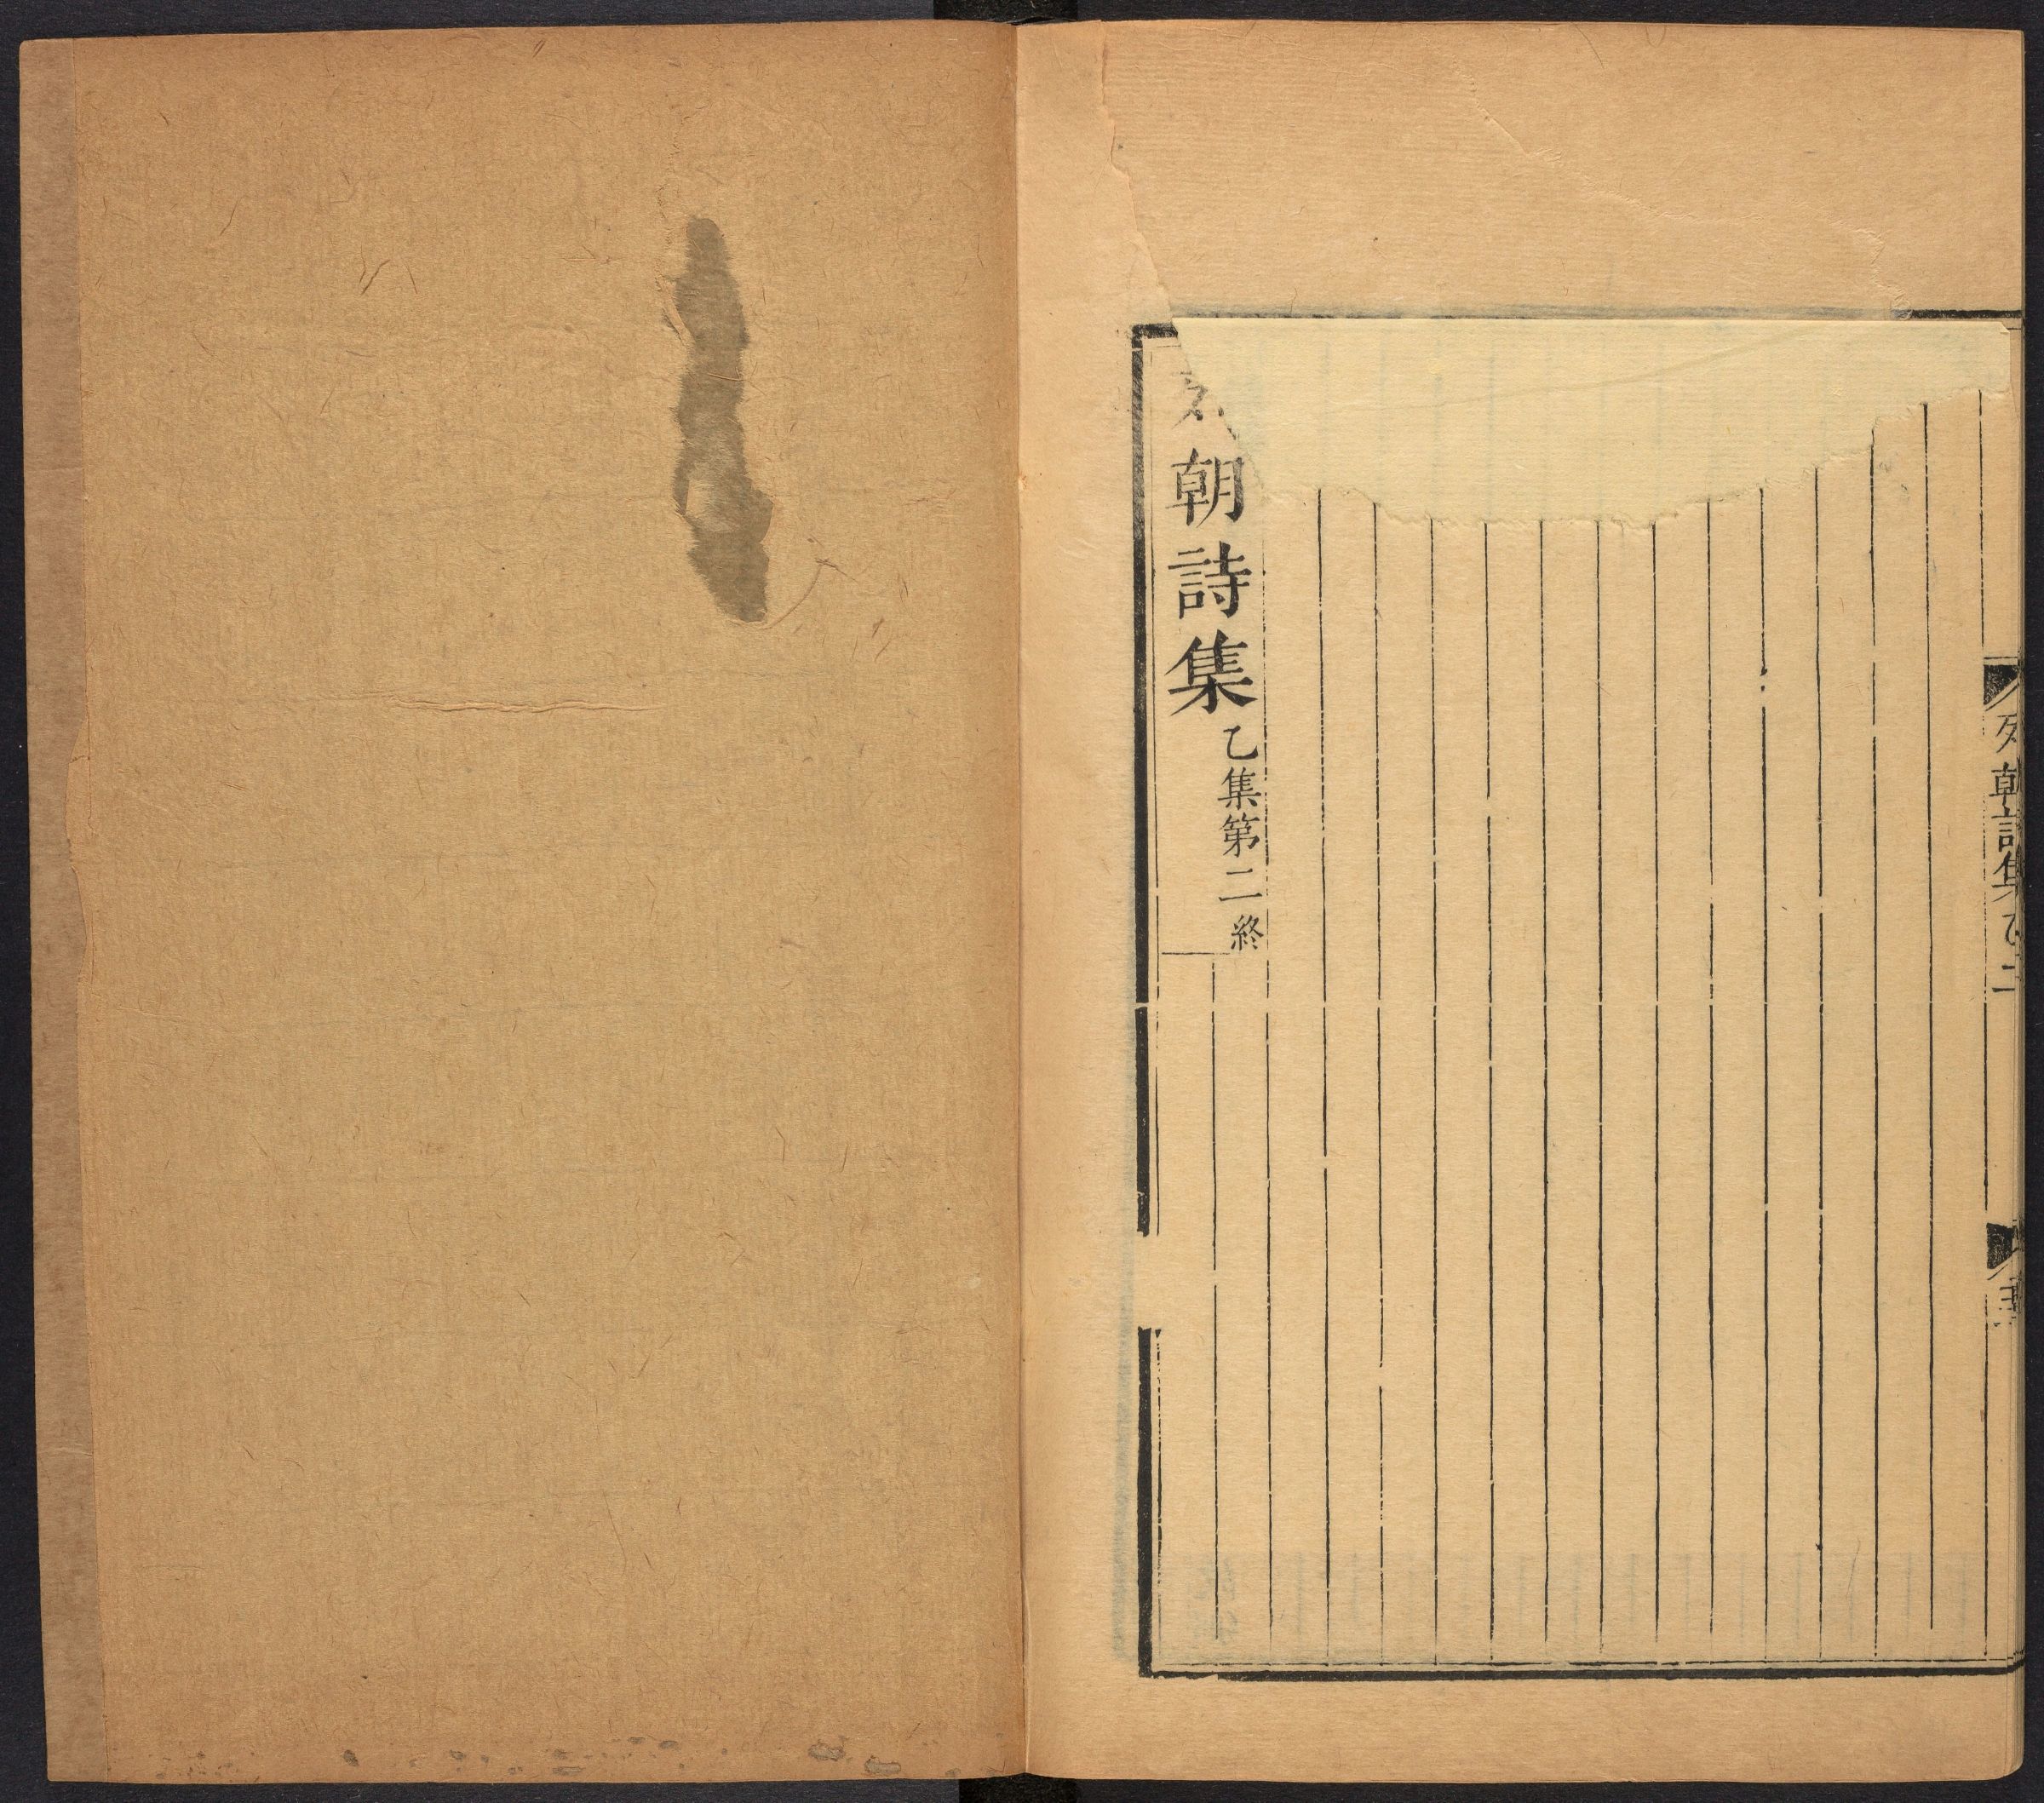 列朝詩集乙二
朝詩集乙集第二終